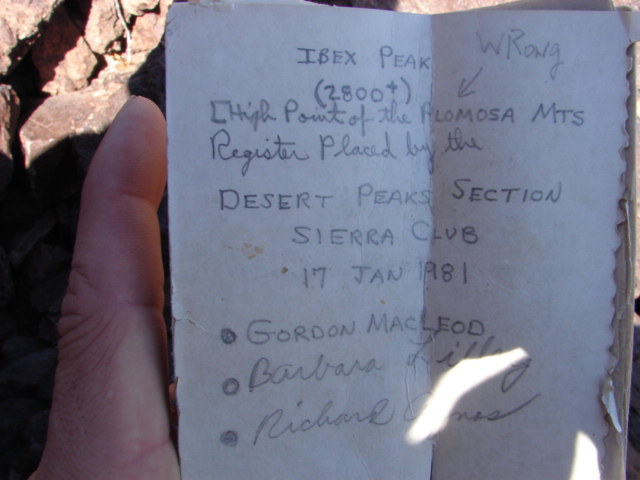 IBEX PEAK
WRong
(2800+)
[High Point of the PLOMOSA MTS
Register Placed by the
DESERT PEAKS SECTION
SIERRA CLUB
17 JAN 1981
GORDON MACLEOD
Barbara Lilley
Richard